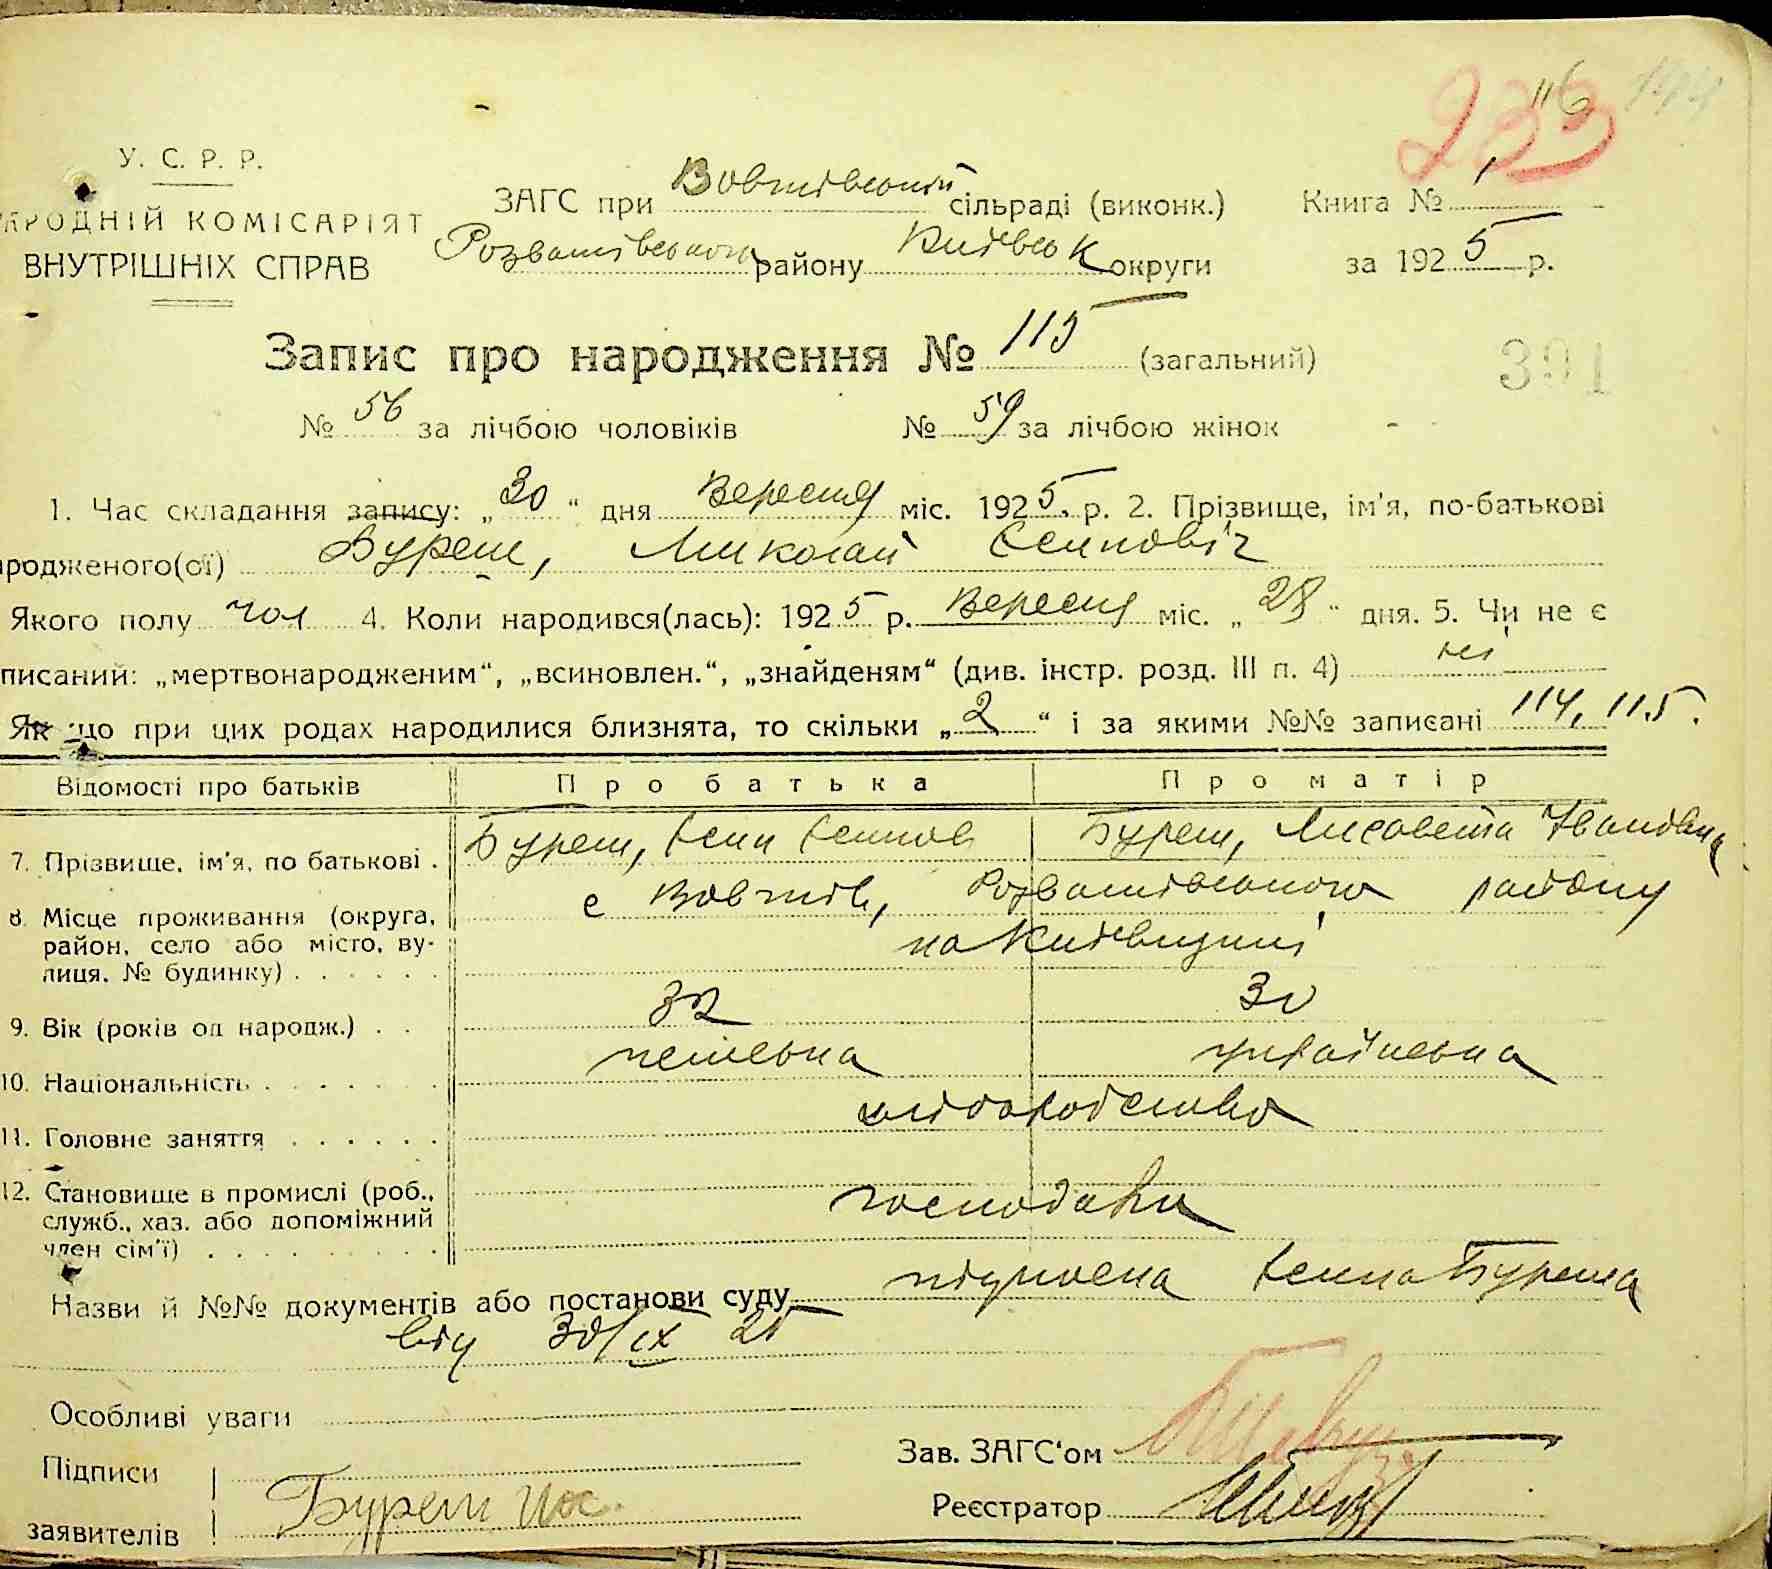 233 116
У. С. Р. Р.
РОДНІЙ КОМІСАРІЯТ
ВНУТРІШНІХ СПРАВ
ЗАГС при Вовчківській сільраді (виконк.) Книга № 1
району Київськ округи за 1925 р.
Запис про народження № 115 (загальний)
391
№ 56 за лічбою чоловіків № 59 за лічбою жінок
1. Час складання запису: „30“ дня Вересня міс. 1925 р. 2. Прізвище, ім'я, по-батькові
родженого(ої) Буреш, Миколай Єсиповіч
Якого полу чол 4. Коли народився(лась): 1925 р. Вересня міс. „28“ дня. 5. Чи не є
писаний: „мертвонародженим“, „всиновлен.“, „знайденям“ (див. інстр. розд. III п. 4) ні
Як що при цих родах народилися близнята, то скільки „2“ і за якими №№ записані 114, 115.
Відомості про батьків Про батька Про матір
7. Прізвище, ім'я, по батькові . Буреш, Єсип Єсипов Буреш, Лисавета Івановна
8. Місце проживання (округа, с Вовчків, району
район, село або місто, ву- на Київщині
лиця, № будинку) . . . . . .
9. Вік (років од народж.) . . 32 30
10. Національність . . . . . . . чешська українська
11. Головне заняття . . . . . . хліборобство
12. Становище в промислі (роб.,
служб., хаз. або допоміжний господарі
член сім'ї) . . . . . . . . .
Назви й №№ документів або постанови суду підписка Єсипа Буреша
від 30/IX 25
Особливі уваги
Підписи Зав. ЗАГС'ом
заявителів Буреш Йос. Реєстратор